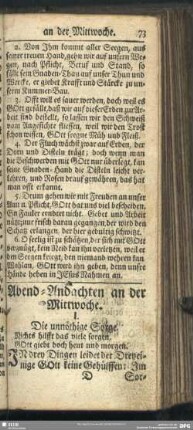 an der Mittwoche. 73
2. Von Jhm kommt aller Seegen, aus
seiner treuen Hand, gehn wir auf unsern We-
gen, nach Pflicht, Beruf und Stand, so
fällt sein Gnaden-Thau auf unser Thun und
Wercke, er giebet Krafft und Stärcke zu un-
serm Kummer-Bau.
3. Offt will es sauer werden, doch weil es
GOtt gefällt, daß wir auf dieser Erden zur Ar-
beit sind bestellt, so lassen wir den Schweiß
vom Angesichte fliessen, weil wir den Trost
schon wissen, GOtt segne Müh und Fleiß.
4. Der Fluch wächst zwar auf Erden, der
Dorn und Disteln trägt; doch wenn man
die Beschwerden mit GOtt nur überlegt, kan
seine Gnaden-Hand die Disteln leicht ver-
kehren, und Rosen drauf gewähren, das hat
man offt erkannt.
5. Drum gehen wir mit Freuden an unser
Amt u. Pflicht, GOtt hat uns viel bescheiden.
Ein Fauler erndet nicht. Gebet und Arbeit
müssen
Schatz erlangen, der hier geduldig schwitzt.
6. O selig ist zu schätzen, der sich mit GOtt
vergnügt, kein Neid kan ihn verletzen, weil er
den Seegen kriegt, den niemand wehren kan.
Wohlan, GOtt wird ihn geben, denn unsre
Hände heben in JEsus Nahmen an.
Abend-Andachten an der
Mittwoche.
I.
Die unnöthige Sorge.
Nichts hilfft das viele sorgen,
GOtt giebt doch heut und morgen.
JN drey Dingen leidet der Dreyei-
nige GOtt keine Gehülffen: Jm
D Sor-